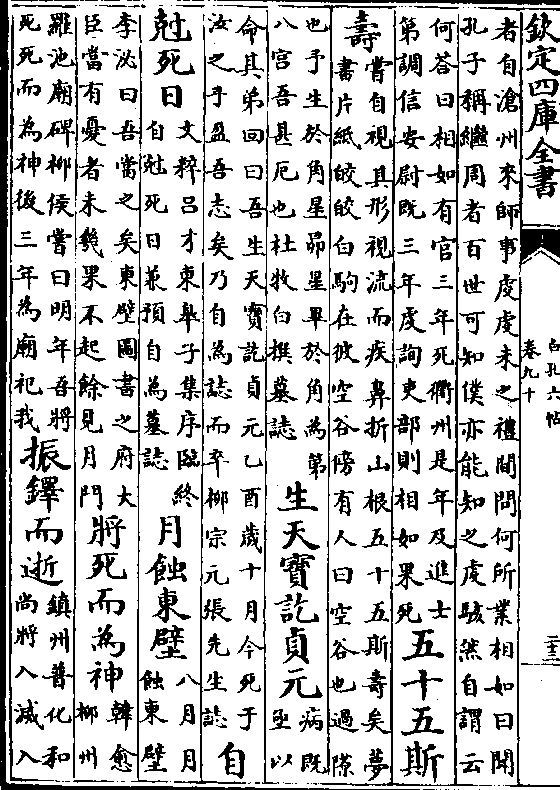 欽定四庫全書
白孔六帖
卷九十
二十三
者自滄州來師事虔虔未之禮閒問何所業相如曰聞
孔子稱繼周者百世可知僕亦能知之虔駭然自謂云
何荅曰相如有官三年死衢州是年及進士
第調信安尉既三年虔詢吏部則相如果死
五十五斯
壽
嘗自視其形視流而疾鼻折山根五十五斯壽矣夢
書片紙皎皎白駒在彼空谷傍有人曰空谷也過隙
也予生於角星昴星畢於角為第
八宮吾甚厄也杜牧自撰墓誌
生天寶訖貞元
病既
亟以
命其弟回曰吾生天寶訖貞元乙酉歲十月今死于
汝之手盈吾志矣乃自為誌而卒柳宗元張先生誌
自
尅死日
文粹呂才東臯子集序臨終
自尅死日兼預自為墓誌
月蝕東壁
八月月
蝕東壁
李泌曰吾當之矣東壁圖書之府大
臣當有憂者未幾果不起餘見月門
將死而為神
韓愈
柳州
羅池廟碑柳侯嘗曰明年吾將
死死而為神後三年為廟祀我
振鐸而逝
鎮州普化和
尚將入滅入